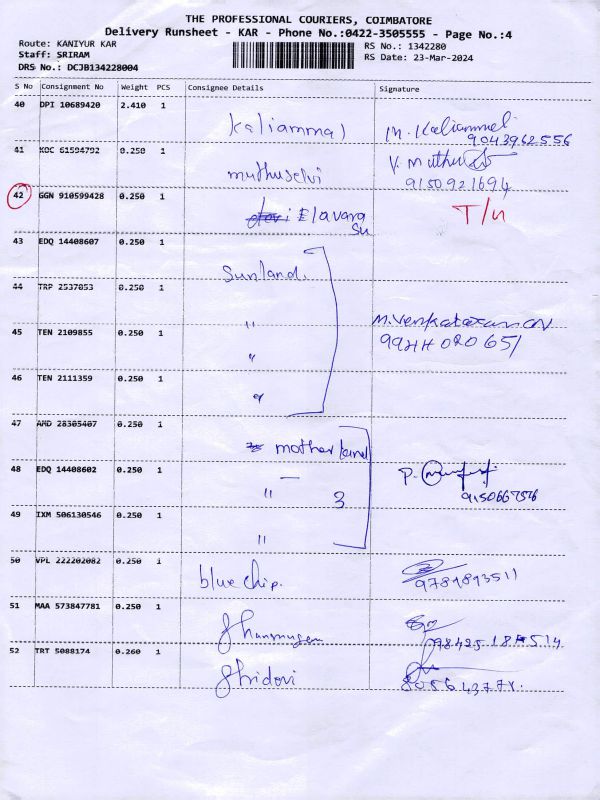 THE PROFESSIONAL COURIERS, COIMBATORE
Delivery Runsheet - KAR - Phone No.:0422-3505555 - Page No.:4
Route: KANIYUR KAR
RS No.: 1342280
Staff: SRIRAM
RS Date: 23-Mar-2024
DRS No.: DCJB134228004
S No Consignment No Weight PCS Consignee Details Signature
40 DPI 10689420 2.410 1 Kaliammal M. Kaliammal
9043962556
41 KOC 61594792 0.250 1 muthuselvi V. Muthu
9150921694
42 GGN 910599428 0.250 1 Elavara T/u
Su
43 EDQ 14408607 0.250 1 Sunland.
44 TRP 2537053 0.250 1 "
M. Venkatesan
45 TEN 2109855 0.250 1 "
46 TEN 2111359 0.250 1 "
47 AMD 28305407 0.250 1 motherland
48 EDQ 14408602 0.250 1 " 3 P.
49 IXM 506130546 0.250 1 "
50 VPL 222202082 0.250 1 bluechip.
51 MAA 573847781 0.250 1 Shanmugam
52 TRT 5088174 0.260 1 Shridevi